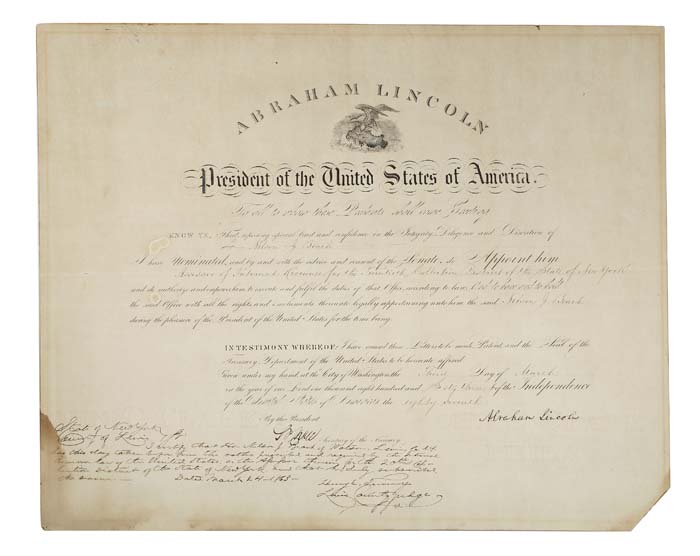 ABRAHAM LINCOLN
President of the United States of America.
To all to whom these Presents shall come Greeting
KNOW YE, That reposing special trust and confidence in the Integrity Diligence and Discretion of
Nelson J Beach
I have Nominated, and by and with the advice and consent of the Senate, do Appoint him
Assessor of Internal Revenue for the Twentieth Collection District of the State of New York
and do authorize and empower him to execute and fulfil the duties of that Office according to law And to have and to hold
the said Office with all the rights and emoluments thereunto legally appertaining unto him the said Nelson J. Beach
during the pleasure of the President of the United States for the time being.
IN TESTIMONY WHEREOF, I have caused these Letters to be made Patent, and the Seal of the
Treasury Department of the United States to be hereunto affixed
Given under my hand, at the City of Washington, the Third Day of March
in the year of our Lord one thousand eight hundred and Sixty Three of the Independence
of the United States of America the eighty seventh
By the President
Abraham Lincoln
Secretary of the Treasury
State of New York
County of Lewis
certify that Hon Nelson J Beach of Watson, Lewis Co
has this day taken the oaths prescribed and required by the Internal
Revenue Laws of the United States as Assessor for the 20th
District of the State of New York and has
the same Dated March 24 - 1863 -
Lewis County Judge